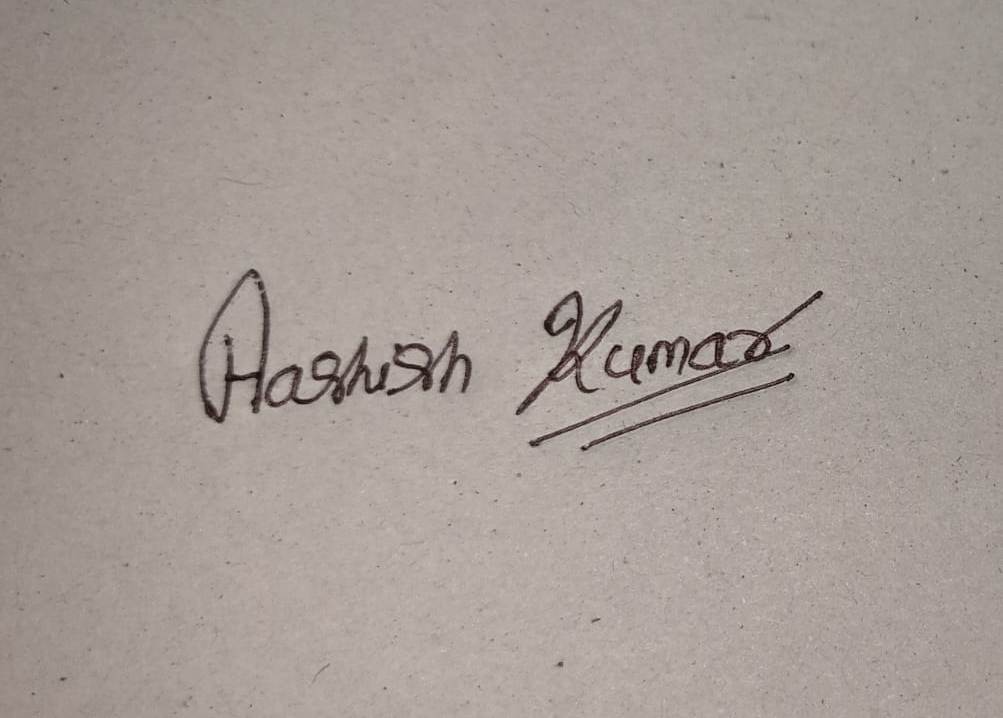 Aashish Kumar